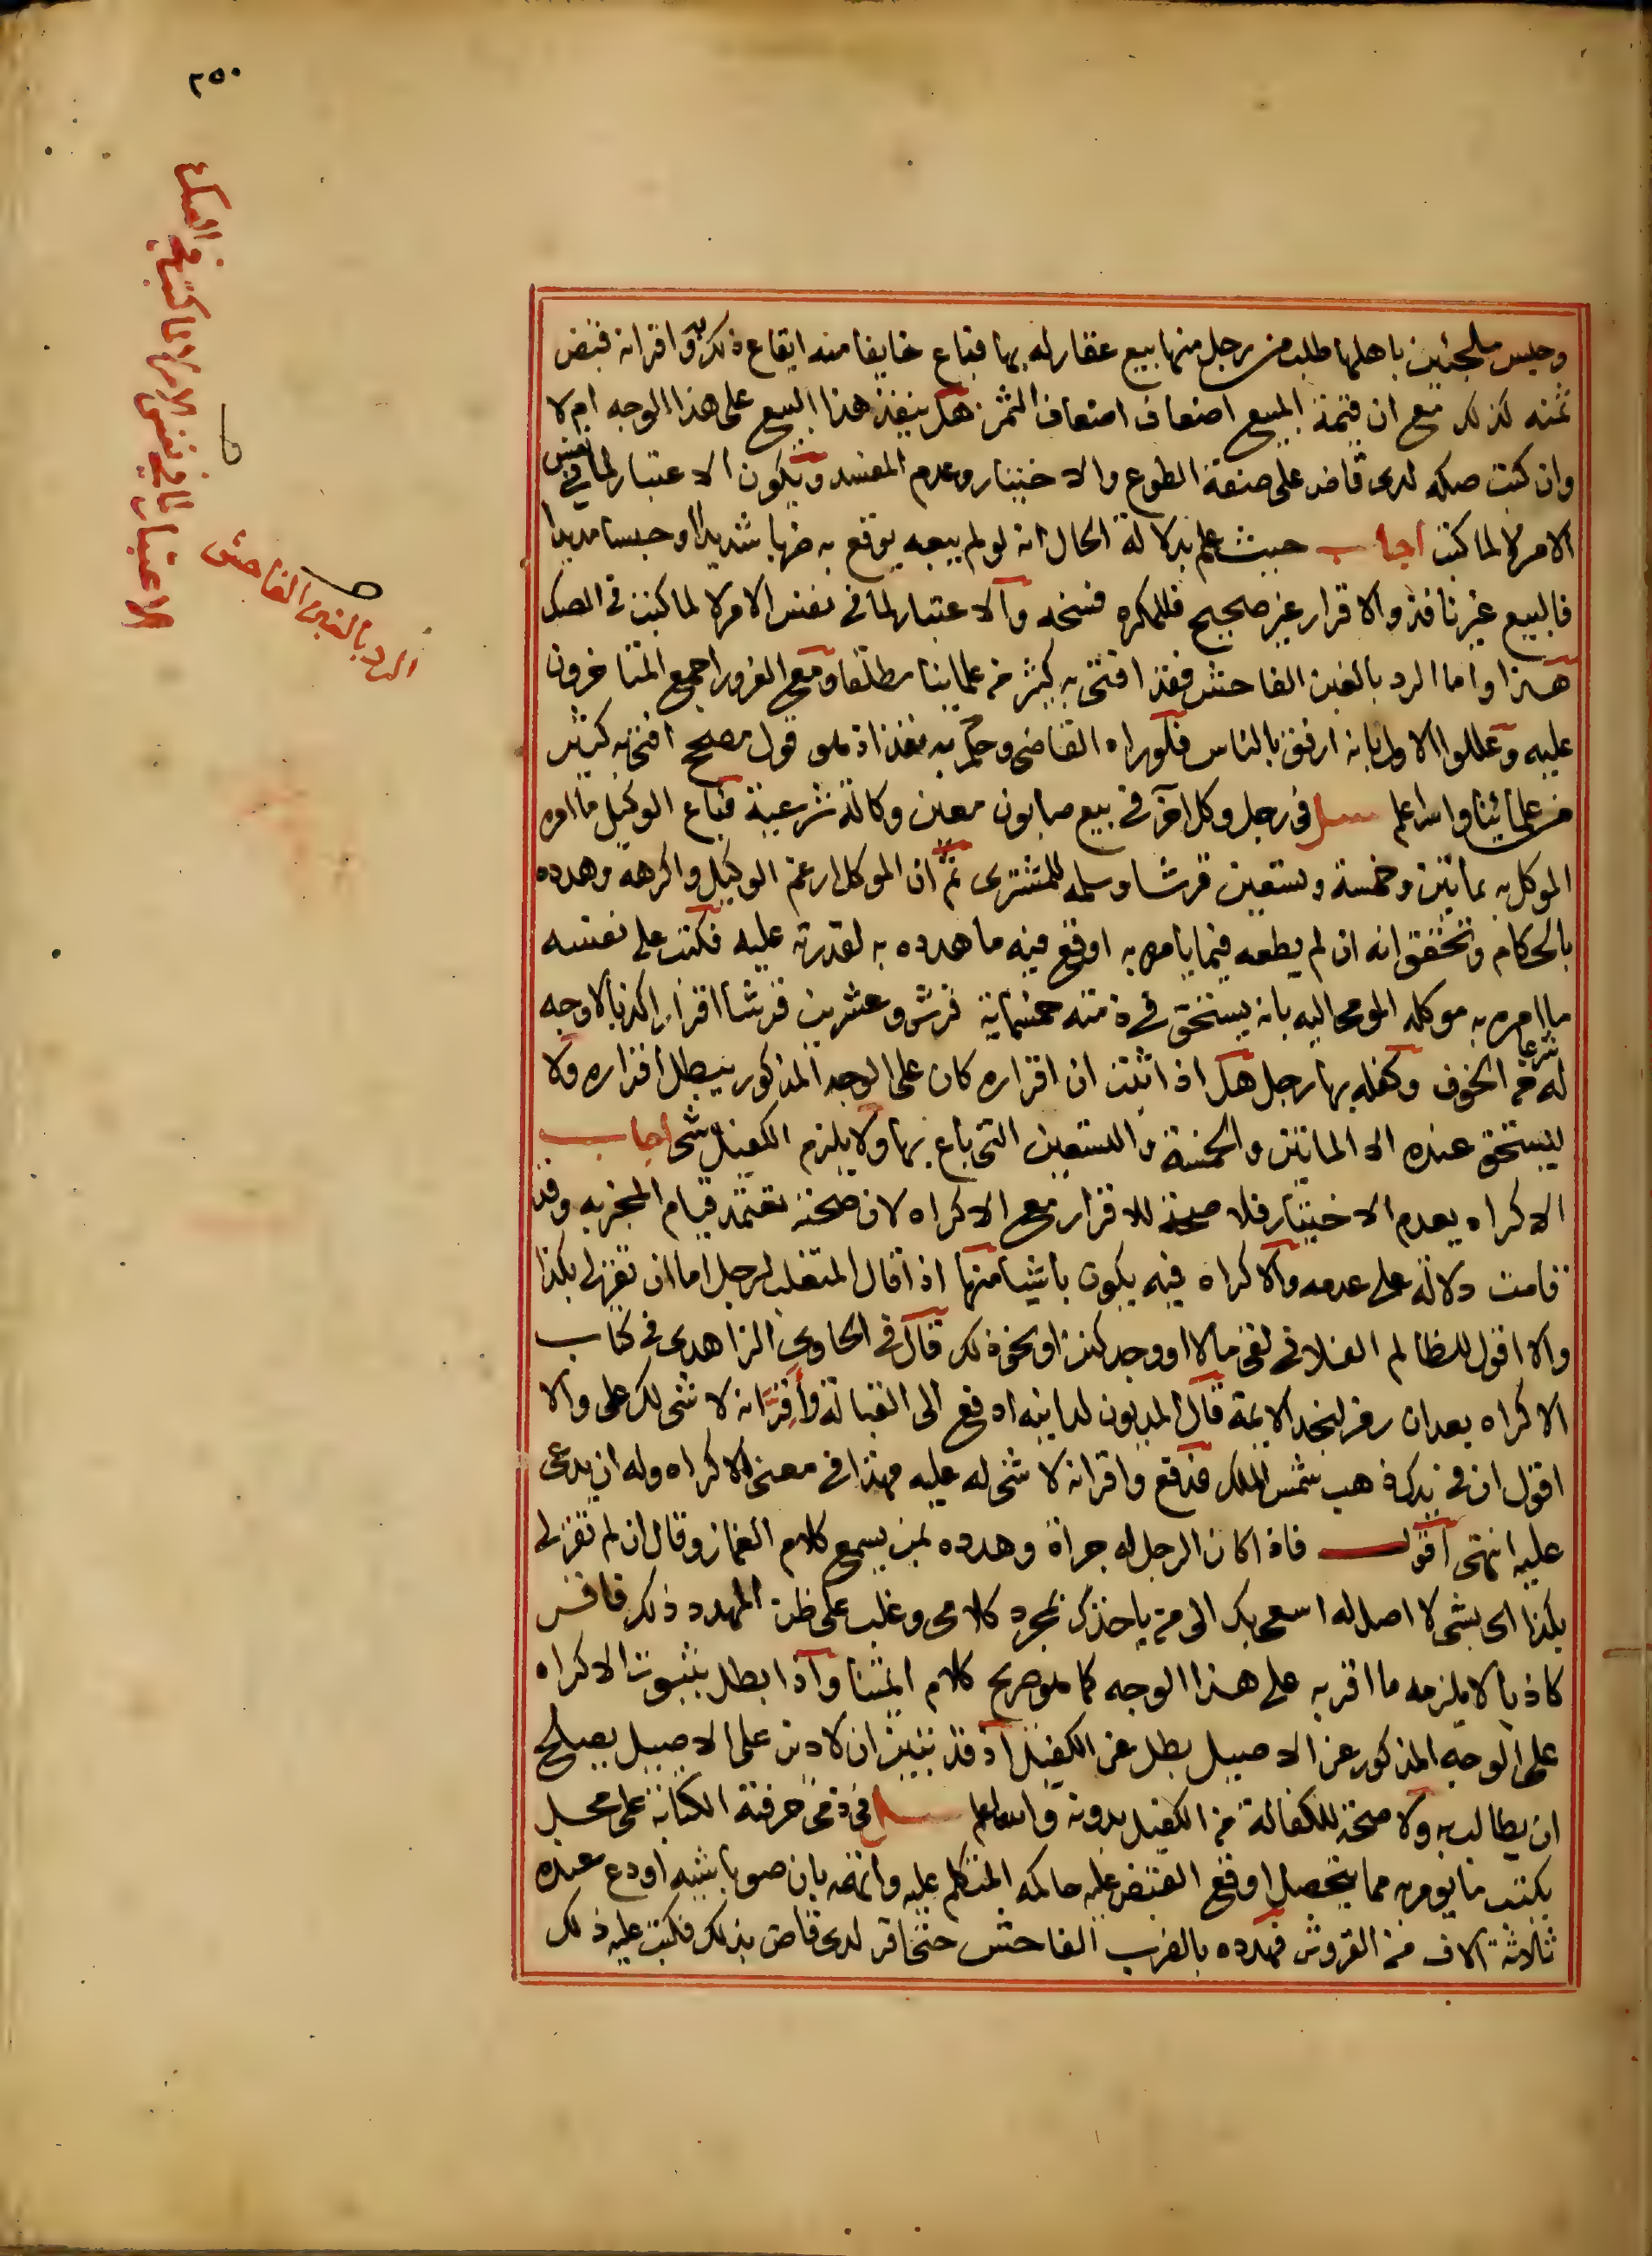 ٢٥٠
وحبس ملجئين باهلها طلب من رجل منها بيع عقار له بها فباع خايفا منه ايقاع ذلك به واقر انه قبض
ثمنه كذلك مع ان قيمة المبيع اضعاف اضعاف الثمن هل ينفذ هذا البيع على هذا الوجه ام لا
وان كتب صكه لدى قاض على صفة الطوع والاختيار وعدم المفسد ويكون الاعتبار لما في نفس
الامر لا لما كتب اجاب حيث علم بدلالة الحال انه لو لم يبعه يوقع به ضربا شديدا او حبسا مديدا
فالبيع غير نافذ والاقرار غير صحيح فللمكره فسخه والاعتبار لما في نفس الامر لا لما كتب في الصك
هذا واما الرد بالغبن الفاحش فقد افتى به كثير من علمائنا مطلقا ومع الغرور اجمع المتاخرون
عليه وعللوا الاول بانه ارفق بالناس فلو راه القاضي وحكم به نفذ اذ هو قول مصحح افتى به كثير
من علمائنا والله اعلم سئل في رجل وكل اخر في بيع صابون معين وكالة شرعية فباع الوكيل ما امره
الموكل به بمائتين وخمسة وتسعين قرشا وسلمه للمشترى ثم ان الموكل ارغم الوكيل واكرهه وهدده
بالحكام وتحقق انه ان لم يطعه فيما يامره به اوقع فيه ما هدده به لقدرته عليه فكتب على نفسه
ما امره به موكله المومى اليه بانه يستحق في ذمته خمسماية قرش وعشرين قرشا اقرارا كذبا لا وجه
له شرعا من الخوف وكفله بها رجل هل اذا ثبت ان اقراره كان على الوجه المذكور يبطل اقراره ولا
يستحق عنده الا المائتين والخمسة والتسعين التي باع بها ولا يلزم الكفيل شي اجاب
الاكراه يعدم الاختيار فلا صحة للاقرار مع الاكراه لان صحته تعتمد قيام المخبر به وقد
قامت دلالة على عدمه والاكراه فيه يكون باشيا منها اذا قال المتغلب لرجل اما ان تقر لي بكذا
والا اقول للظالم الفلاني لقي مالا او وجد كنزا او نحو ذلك قال في الحاوي الزاهدي في كتاب
الاكراه بعد ان رمز لنجد الايمة قال المديون لداينه ادفع الى القبالة واقر انه لا شي لك على والا
اقول ان في يدك ذهب شمس الملك فدفع واقر انه لا شي له عليه فهذا في معنى الاكراه وله ان يدعى
عليه انتهى اقول فاذا كان الرجل له جراة وهدده بمن يسمع كلام الغماز وقال ان لم تقر لي
بكذا اى بشي لا اصل له اسعى بك الى من ياخذك بمجرد كلامى وغلب على ظن المهدد ذلك فاقر
كاذبا لا يلزمه ما اقر به على هذا الوجه كما هو صريح كلام ائمتنا واذا بطل بثبوت الاكراه
على الوجه المذكور عن الاصيل بطل عن الكفيل اذ قد تبين ان لا دين على الاصيل يصلح
ان يطالب به ولا صحة للكفالة من الكفيل بدونه والله اعلم سئل في ذمى حرفته الكتابة على محل
يكتب ما يومر به مما يتحصل اوقع القبض عليه حاكمه المتكلم عليه واتهمه بان صوباشيه اودع عنده
ثلاثة الاف من القروش فهدده بالضرب الفاحش حتى اقر لدى قاض بذلك فكتب عليه ذلك
الاعتبار لما في نفس الامر لا لما كتب في الصك
الرد بالغبن الفاحش